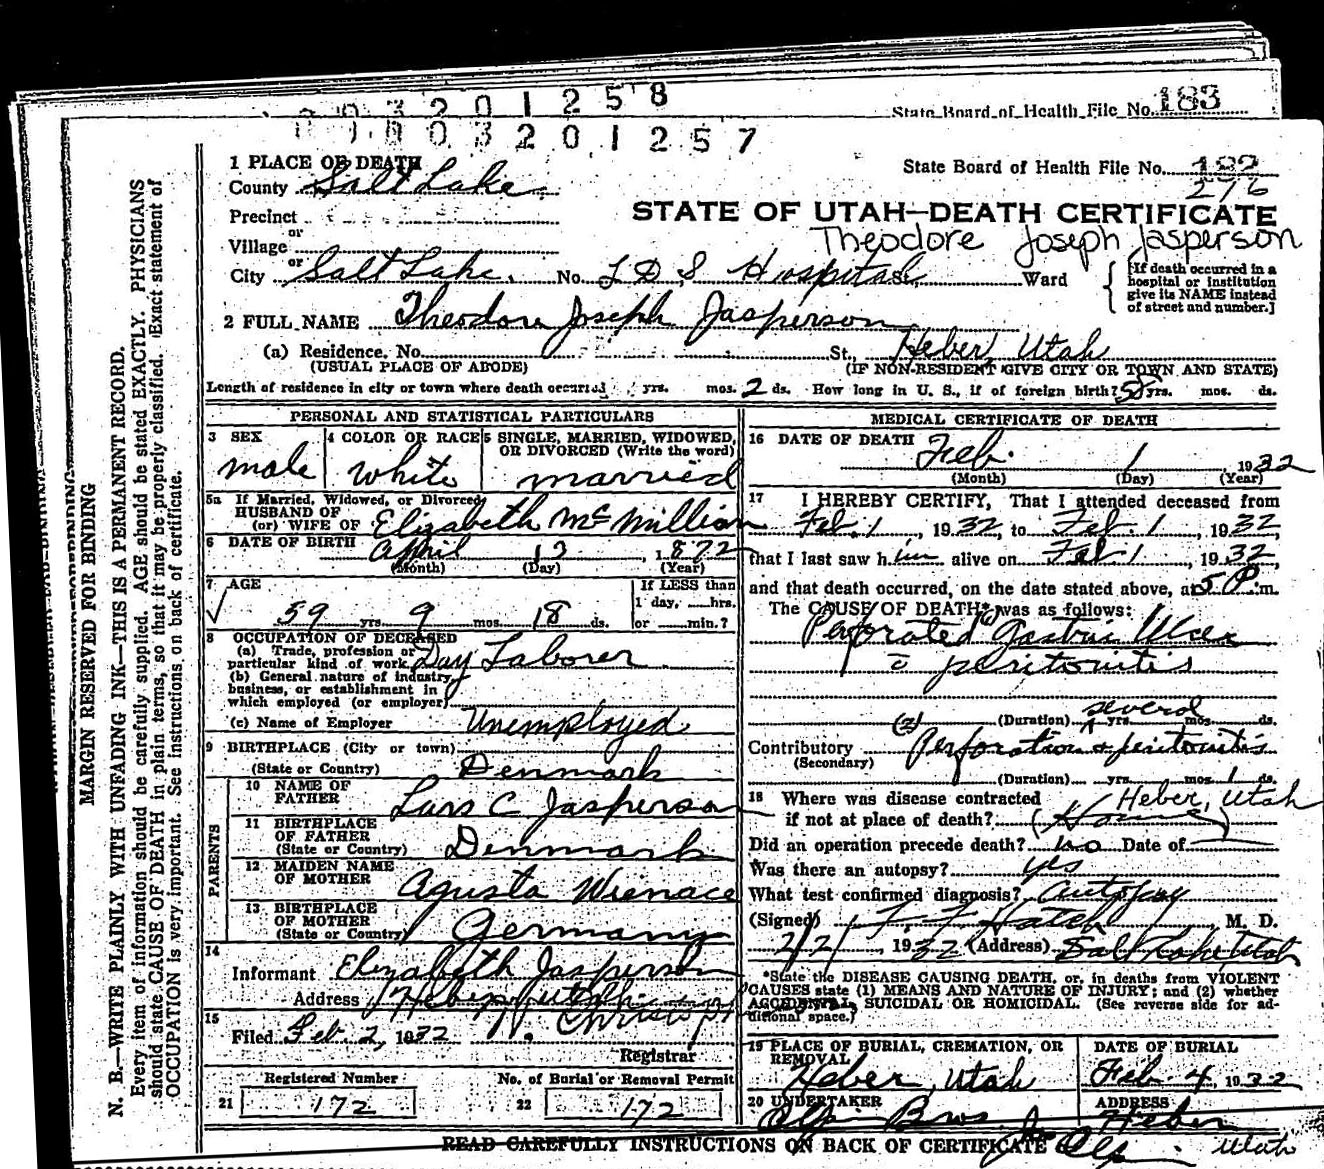 201258
State Board of Health File No. 183
03201257
1 PLACE OF DEATH
State Board of Health File No. 182
216
County Salt Lake
Precinct
or
Village
or
City Salt Lake. No. L D S Hospital Ward
STATE OF UTAH—DEATH CERTIFICATE
Theodore Joseph Jasperson
[If death occurred in a
hospital or institution
give its NAME instead
of street and number.]
2 FULL NAME Theodore Joseph Jasperson
(a) Residence, No. St., Heber, Utah
(USUAL PLACE OF ABODE) (IF NON-RESIDENT GIVE CITY OR TOWN AND STATE)
Length of residence in city or town where death occurred yrs. mos. 2 ds. How long in U. S., if of foreign birth? 58 yrs. mos. ds.
PERSONAL AND STATISTICAL PARTICULARS
3 SEX
male
4 COLOR OR RACE
white
5 SINGLE, MARRIED, WIDOWED,
OR DIVORCED (Write the word)
married
5a If Married, Widowed, or Divorced
HUSBAND OF
(or) WIFE OF Elizabeth McMillian
6 DATE OF BIRTH April 13, 1872
(Month) (Day) (Year)
7 AGE
59 yrs. 9 mos. 18 ds.
If LESS than
1 day, hrs.
or min.?
8 OCCUPATION OF DECEASED
(a) Trade, profession or
particular kind of work Day Laborer
(b) General nature of industry,
business, or establishment in
which employed (or employer)
(c) Name of Employer Unemployed
9 BIRTHPLACE (City or town)
(State or Country) Denmark
PARENTS
10 NAME OF
FATHER Lars C Jasperson
11 BIRTHPLACE
OF FATHER
(State or Country) Denmark
12 MAIDEN NAME
OF MOTHER Agusta Wienace
13 BIRTHPLACE
OF MOTHER
(State or Country) Germany
14
Informant Elizabeth Jasperson
Address Heber, Utah
15
Filed Feb. 2, 1932
Registrar
Registered Number
21 172
No. of Burial or Removal Permit
22 172
MEDICAL CERTIFICATE OF DEATH
16 DATE OF DEATH Feb. 1, 1932
(Month) (Day) (Year)
17 I HEREBY CERTIFY, That I attended deceased from
Feb. 1, 1932, to Feb. 1, 1932,
that I last saw him alive on Feb 1, 1932,
and that death occurred, on the date stated above, at 5 P. m.
The CAUSE OF DEATH* was as follows:
Perforated Gastric Ulcer
c̄ peritonitis
(2) (Duration) several yrs. mos. ds.
Contributory Perforation + peritonitis
(Secondary)
(Duration) yrs. mos. 1 ds.
18 Where was disease contracted Heber, Utah
if not at place of death? (Home)
Did an operation precede death? no Date of
Was there an autopsy? yes
What test confirmed diagnosis? Autopsy
(Signed) F. F. Hatch, M. D.
2/2/, 1932 (Address) Salt Lake Utah
*State the DISEASE CAUSING DEATH, or, in deaths from VIOLENT
CAUSES state (1) MEANS AND NATURE OF INJURY; and (2) whether
ACCIDENTAL, SUICIDAL OR HOMICIDAL. (See reverse side for ad-
ditional space.)
19 PLACE OF BURIAL, CREMATION, OR
REMOVAL
Heber, Utah
DATE OF BURIAL
Feb. 4, 1932
20 UNDERTAKER
Olp Bros.
ADDRESS
Heber
Utah
READ CAREFULLY INSTRUCTIONS ON BACK OF CERTIFICATE
MARGIN RESERVED FOR BINDING
N. B.—WRITE PLAINLY WITH UNFADING INK—THIS IS A PERMANENT RECORD.
Every item of information should be carefully supplied. AGE should be stated EXACTLY. PHYSICIANS
should state CAUSE OF DEATH in plain terms, so that it may be properly classified. Exact statement of
OCCUPATION is very important. See instructions on back of certificate.